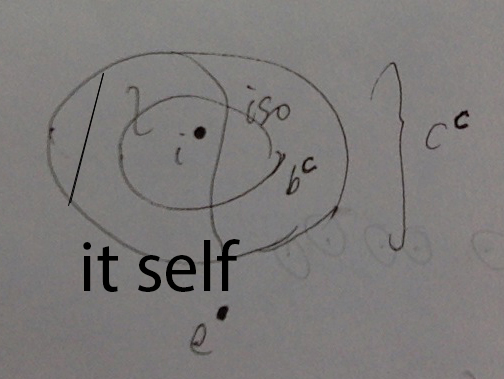 iso
i
b^c
c^c
it self
e